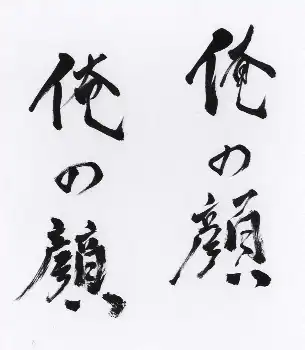 俺の顔
俺の顔